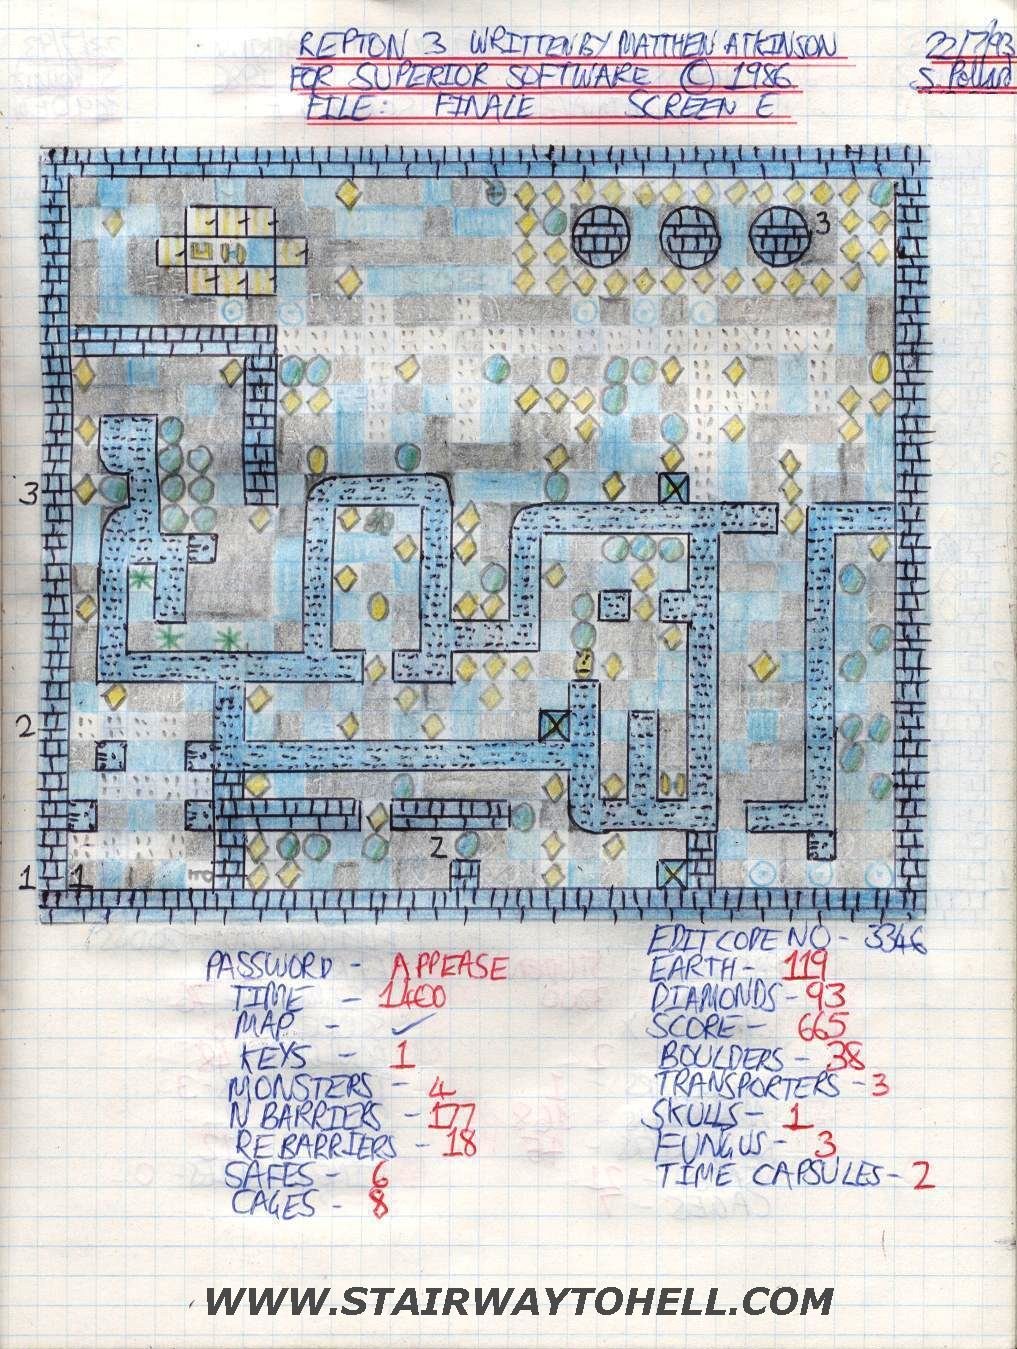 REPTON 3 WRITTEN BY MATTHEW ATKINSON 22/7/93
FOR SUPERIOR SOFTWARE © 1986 S. Pollard
FILE: FINALE SCREEN E
3
3
2
2
1 1
EDIT CODE NO - 3346
PASSWORD - APPEASE EARTH - 119
TIME - 1400 DIAMONDS - 93
MAP - ✓ SCORE - 665
KEYS - 1 BOULDERS - 38
MONSTERS - 4 TRANSPORTERS - 3
N BARRIERS - 177 SKULLS - 1
RE BARRIERS - 18 FUNGUS - 3
SAFES - 6 TIME CAPSULES - 2
CAGES - 8
WWW.STAIRWAYTOHELL.COM